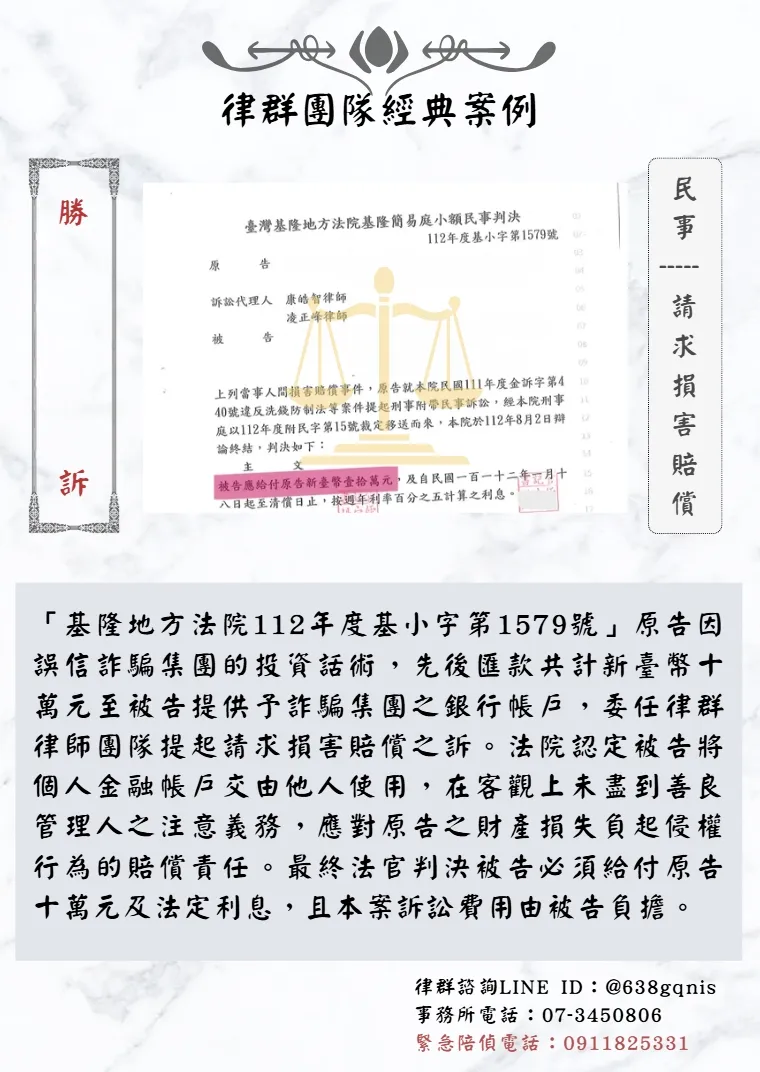 律群團隊經典案例
勝訴
民事-----請求損害賠償
臺灣基隆地方法院基隆簡易庭小額民事判決
112年度基小字第1579號
原 告
訴訟代理人 康皓智律師
凌正峰律師
被 告
上列當事人間損害賠償事件,原告就本院民國111年度金訴字第4
40號違反洗錢防制法等案件提起刑事附帶民事訴訟,經本院刑事
庭以112年度附民字第15號裁定移送而來,本院於112年8月2日辯
論終結,判決如下:
主 文
被告應給付原告新臺幣壹拾萬元,及自民國一百一十二年一月十
八日起至清償日止,按週年利率百分之五計算之利息。
「基隆地方法院112年度基小字第1579號」原告因
誤信詐騙集團的投資話術,先後匯款共計新臺幣十
萬元至被告提供予詐騙集團之銀行帳戶,委任律群
律師團隊提起請求損害賠償之訴。法院認定被告將
個人金融帳戶交由他人使用,在客觀上未盡到善良
管理人之注意義務,應對原告之財產損失負起侵權
行為的賠償責任。最終法官判決被告必須給付原告
十萬元及法定利息,且本案訴訟費用由被告負擔。
律群諮詢LINE ID:@638gqnis
事務所電話:07-3450806
緊急陪偵電話:0911825331